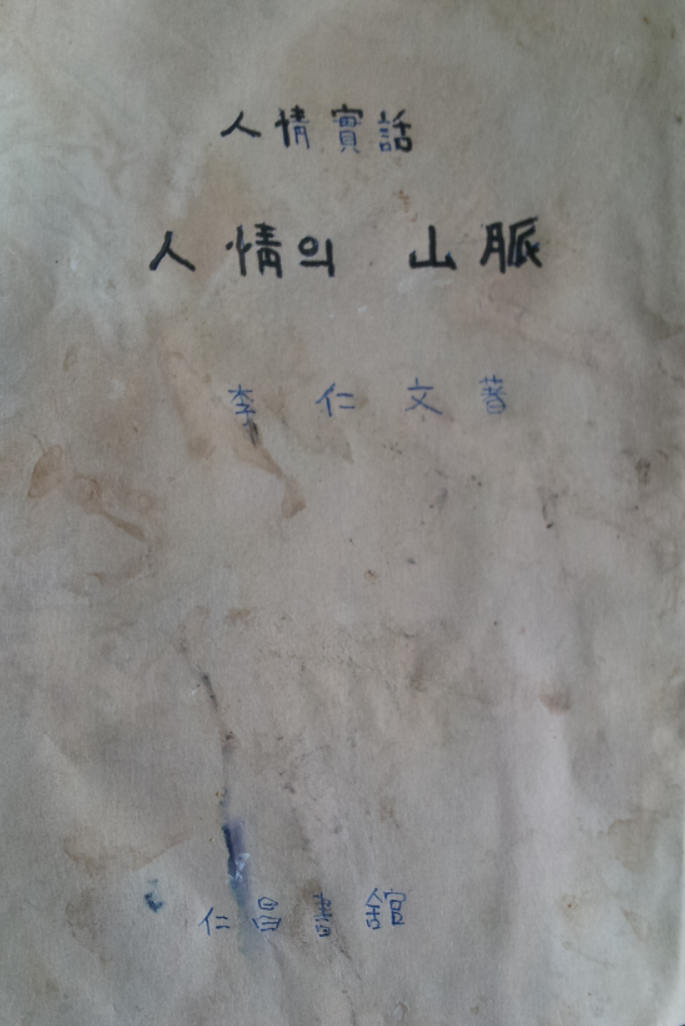 人情實話
人情의 山脈
李仁文著
仁昌書舘